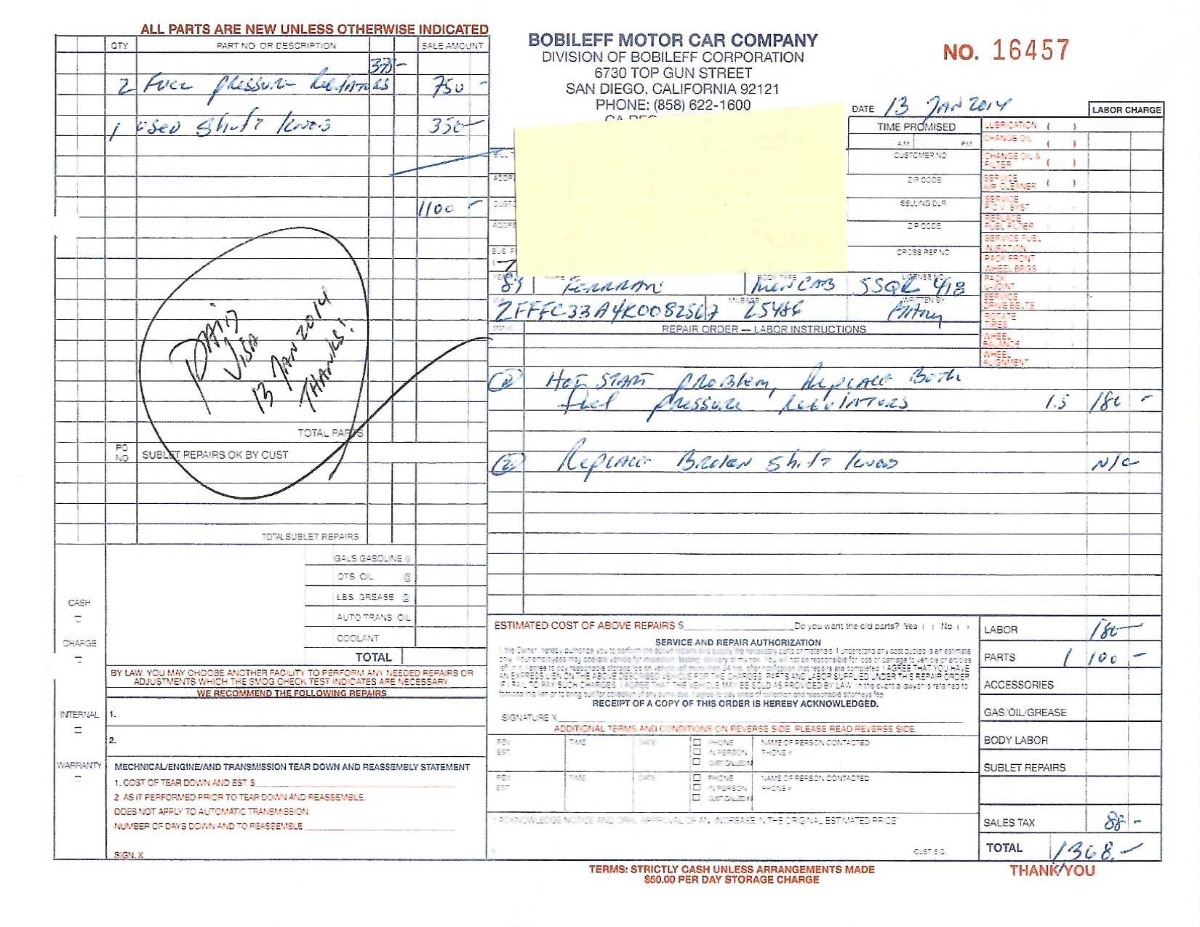 ALL PARTS ARE NEW UNLESS OTHERWISE INDICATED
QTY PART NO. OR DESCRIPTION SALE AMOUNT
375-
2 Fuel pressure 750-
1 used shift knob 350-
1100-
PAID
VISA
13 JAN 2014
THANKS!
TOTAL PARTS
PO NO SUBLET REPAIRS OK BY CUST
TOTAL SUBLET REPAIRS
GALS GASOLINE @
QTS OIL @
LBS GREASE @
AUTO TRANS OIL
COOLANT
TOTAL
CASH
CHARGE
INTERNAL
WARRANTY
BY LAW YOU MAY CHOOSE ANOTHER FACILITY TO PERFORM ANY NEEDED REPAIRS OR
ADJUSTMENTS WHICH THE SMOG CHECK TEST INDICATES ARE NECESSARY.
WE RECOMMEND THE FOLLOWING REPAIRS
1.
2.
MECHNICAL/ENGINE/AND TRANSMISSION TEAR DOWN AND REASSEMBLY STATEMENT
1. COST OF TEAR DOWN AND EST $
2. AS IT PERFORMED PRIOR TO TEAR DOWN AND REASSEMBLE.
DOES NOT APPLY TO AUTOMATIC TRANSMISSION
NUMBER OF DAYS DOWN AND TO REASSEMBLE
SIGN. X
BOBILEFF MOTOR CAR COMPANY
DIVISION OF BOBILEFF CORPORATION
6730 TOP GUN STREET
SAN DIEGO, CALIFORNIA 92121
PHONE: (858) 622-1600
NO. 16457
DATE 13 JAN 2014
LABOR CHARGE
TIME PROMISED
A.M. P.M.
CUSTOMER NO
ZIP CODE
SELLING DLR
ZIP CODE
CROSS REF NO
LUBRICATION ( )
CHANGE OIL ( )
CHANGE OIL & FILTER ( )
SERVICE AIR CLEANER ( )
SERVICE P.C.V. SYST
REPLACE FUEL FILTER
SERVICE FUEL INJECTION
PACK FRONT WHEEL BRGS
PACK U-JOINT
SERVICE DRIVE BELTS
ROTATE TIRES
WHEEL BALANCE
WHEEL ALIGNMENT
BODY TYPE LICENSE NO
89 Ferrari SSQR 418
MILEAGE WRITTEN BY
ZFFFC33A4K0082567 25486
REPAIR ORDER — LABOR INSTRUCTIONS
Hot start problem, Replace Both
Fuel pressure 1.5 180 -
Replace Broken shift knob N/C
ESTIMATED COST OF ABOVE REPAIRS $ Do you want the old parts? Yes ( ) No ( )
SERVICE AND REPAIR AUTHORIZATION
RECEIPT OF A COPY OF THIS ORDER IS HEREBY ACKNOWLEDGED.
SIGNATURE X
ADDITIONAL TERMS AND CONDITIONS ON REVERSE SIDE. PLEASE READ REVERSE SIDE.
REV EST TIME DATE PHONE IN PERSON CUST CALLED IN NAME OF PERSON CONTACTED PHONE #
REV EST TIME DATE PHONE IN PERSON CUST CALLED IN NAME OF PERSON CONTACTED PHONE #
"I ACKNOWLEDGE NOTICE AND ORAL APPROVAL OF AN INCREASE IN THE ORIGINAL ESTIMATED PRICE"
X CUST SIG.
LABOR 180-
PARTS 1 100 -
ACCESSORIES
GAS/OIL/GREASE
BODY LABOR
SUBLET REPAIRS
SALES TAX 88-
TOTAL 1368.-
TERMS: STRICTLY CASH UNLESS ARRANGEMENTS MADE
$50.00 PER DAY STORAGE CHARGE
THANK YOU